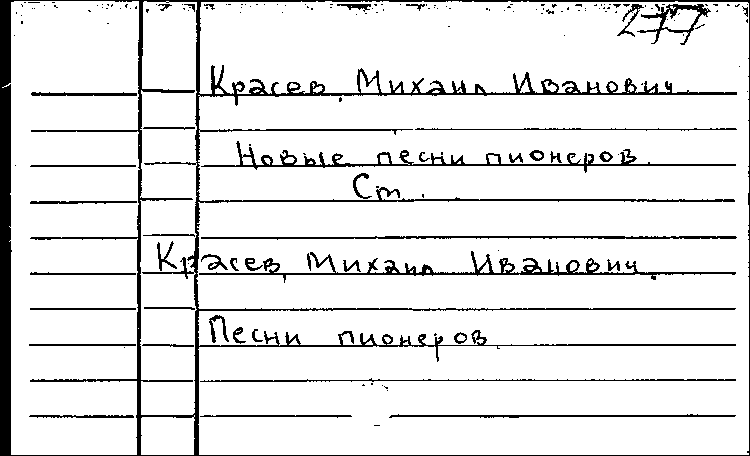 277
Красев, Михаил Иванович.
Новые песни пионеров.
Ст.
Красев, Михаил Иванович.
Песни пионеров